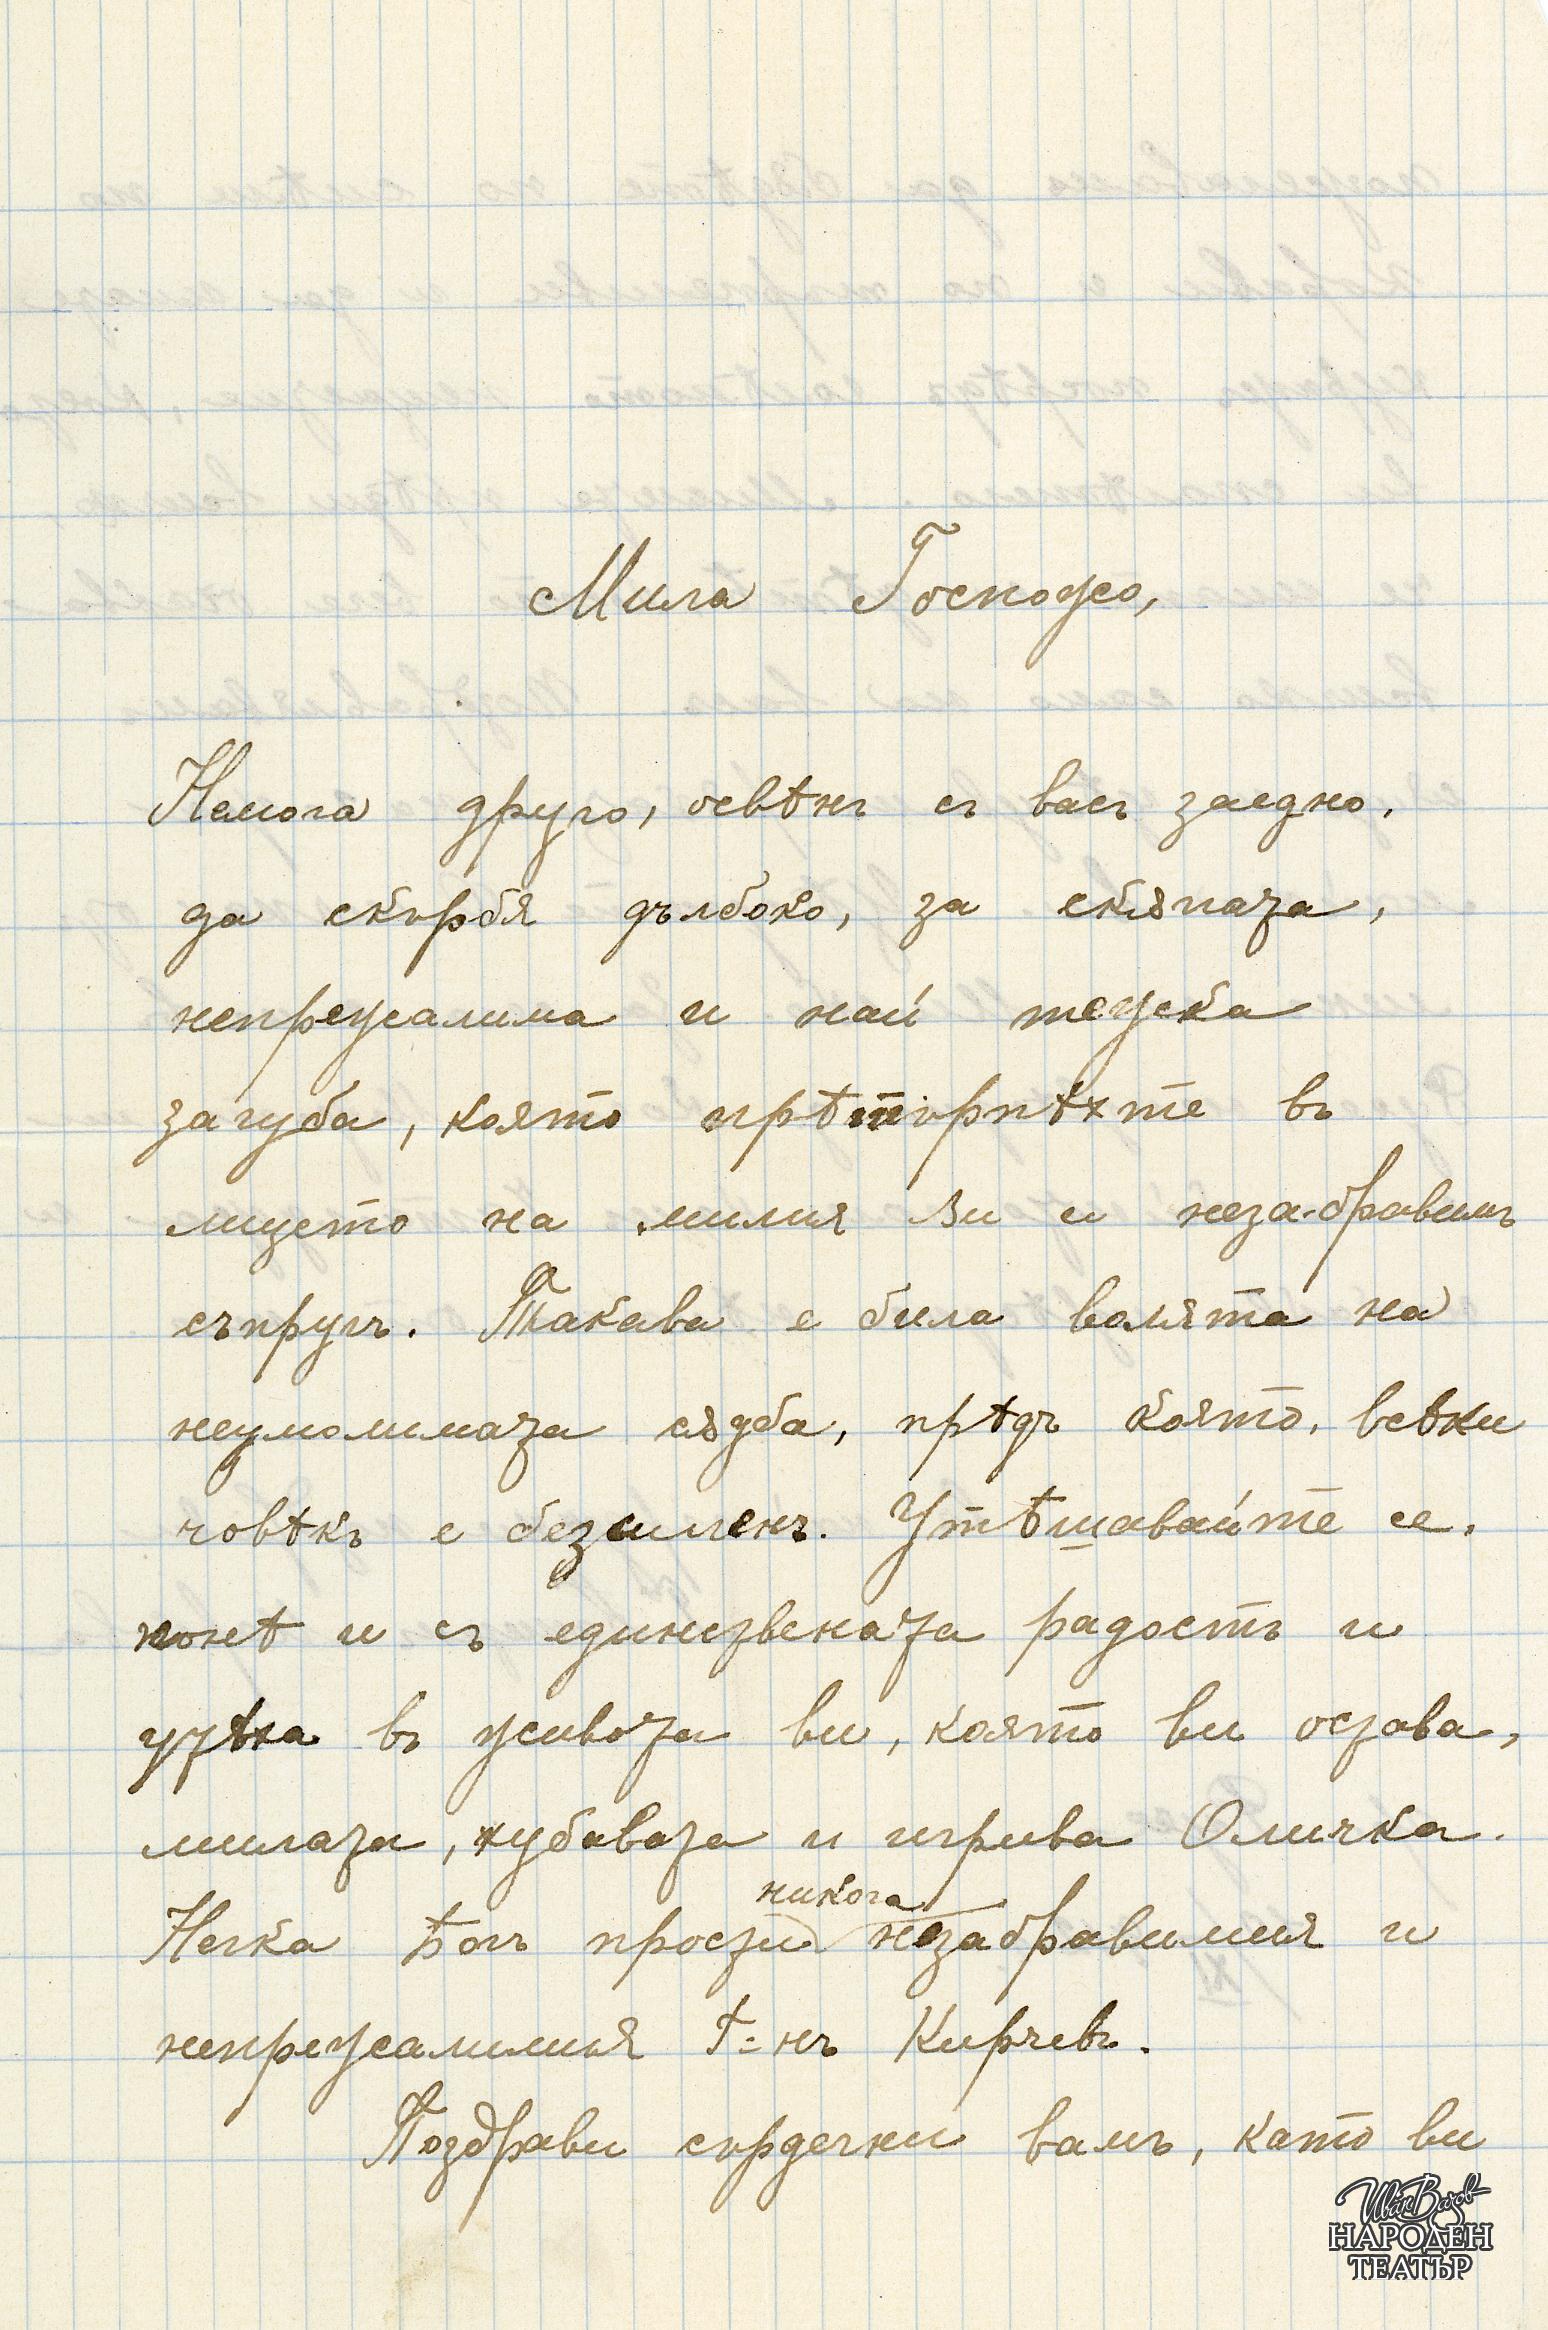 Мила Госпожо,
Немога друго, освѣнъ съ васъ заедно,
да скърбя дълбоко, за скѫпата,
непрежалима и най тежка
загуба, която прѣтърпѣхте въ
лицето на милия Ви и незабравимъ
съпругъ. Такава е била волята на
неумолимата сѫдба, прѣдъ която, всѣки
човѣкъ е безсиленъ. Утѣшавайте се,
понѣ и съ единствената радость и
утѣха въ живота ви, която ви остава,
милата, хубавата и игрива Оличка.
никога
Нека Богъ прости незабравимия и
непрежалимия Г-нъ Кирчевъ.
Поздрави сърдечни вамъ, като ви
Иван Вазов
НАРОДЕН
ТЕАТЪР